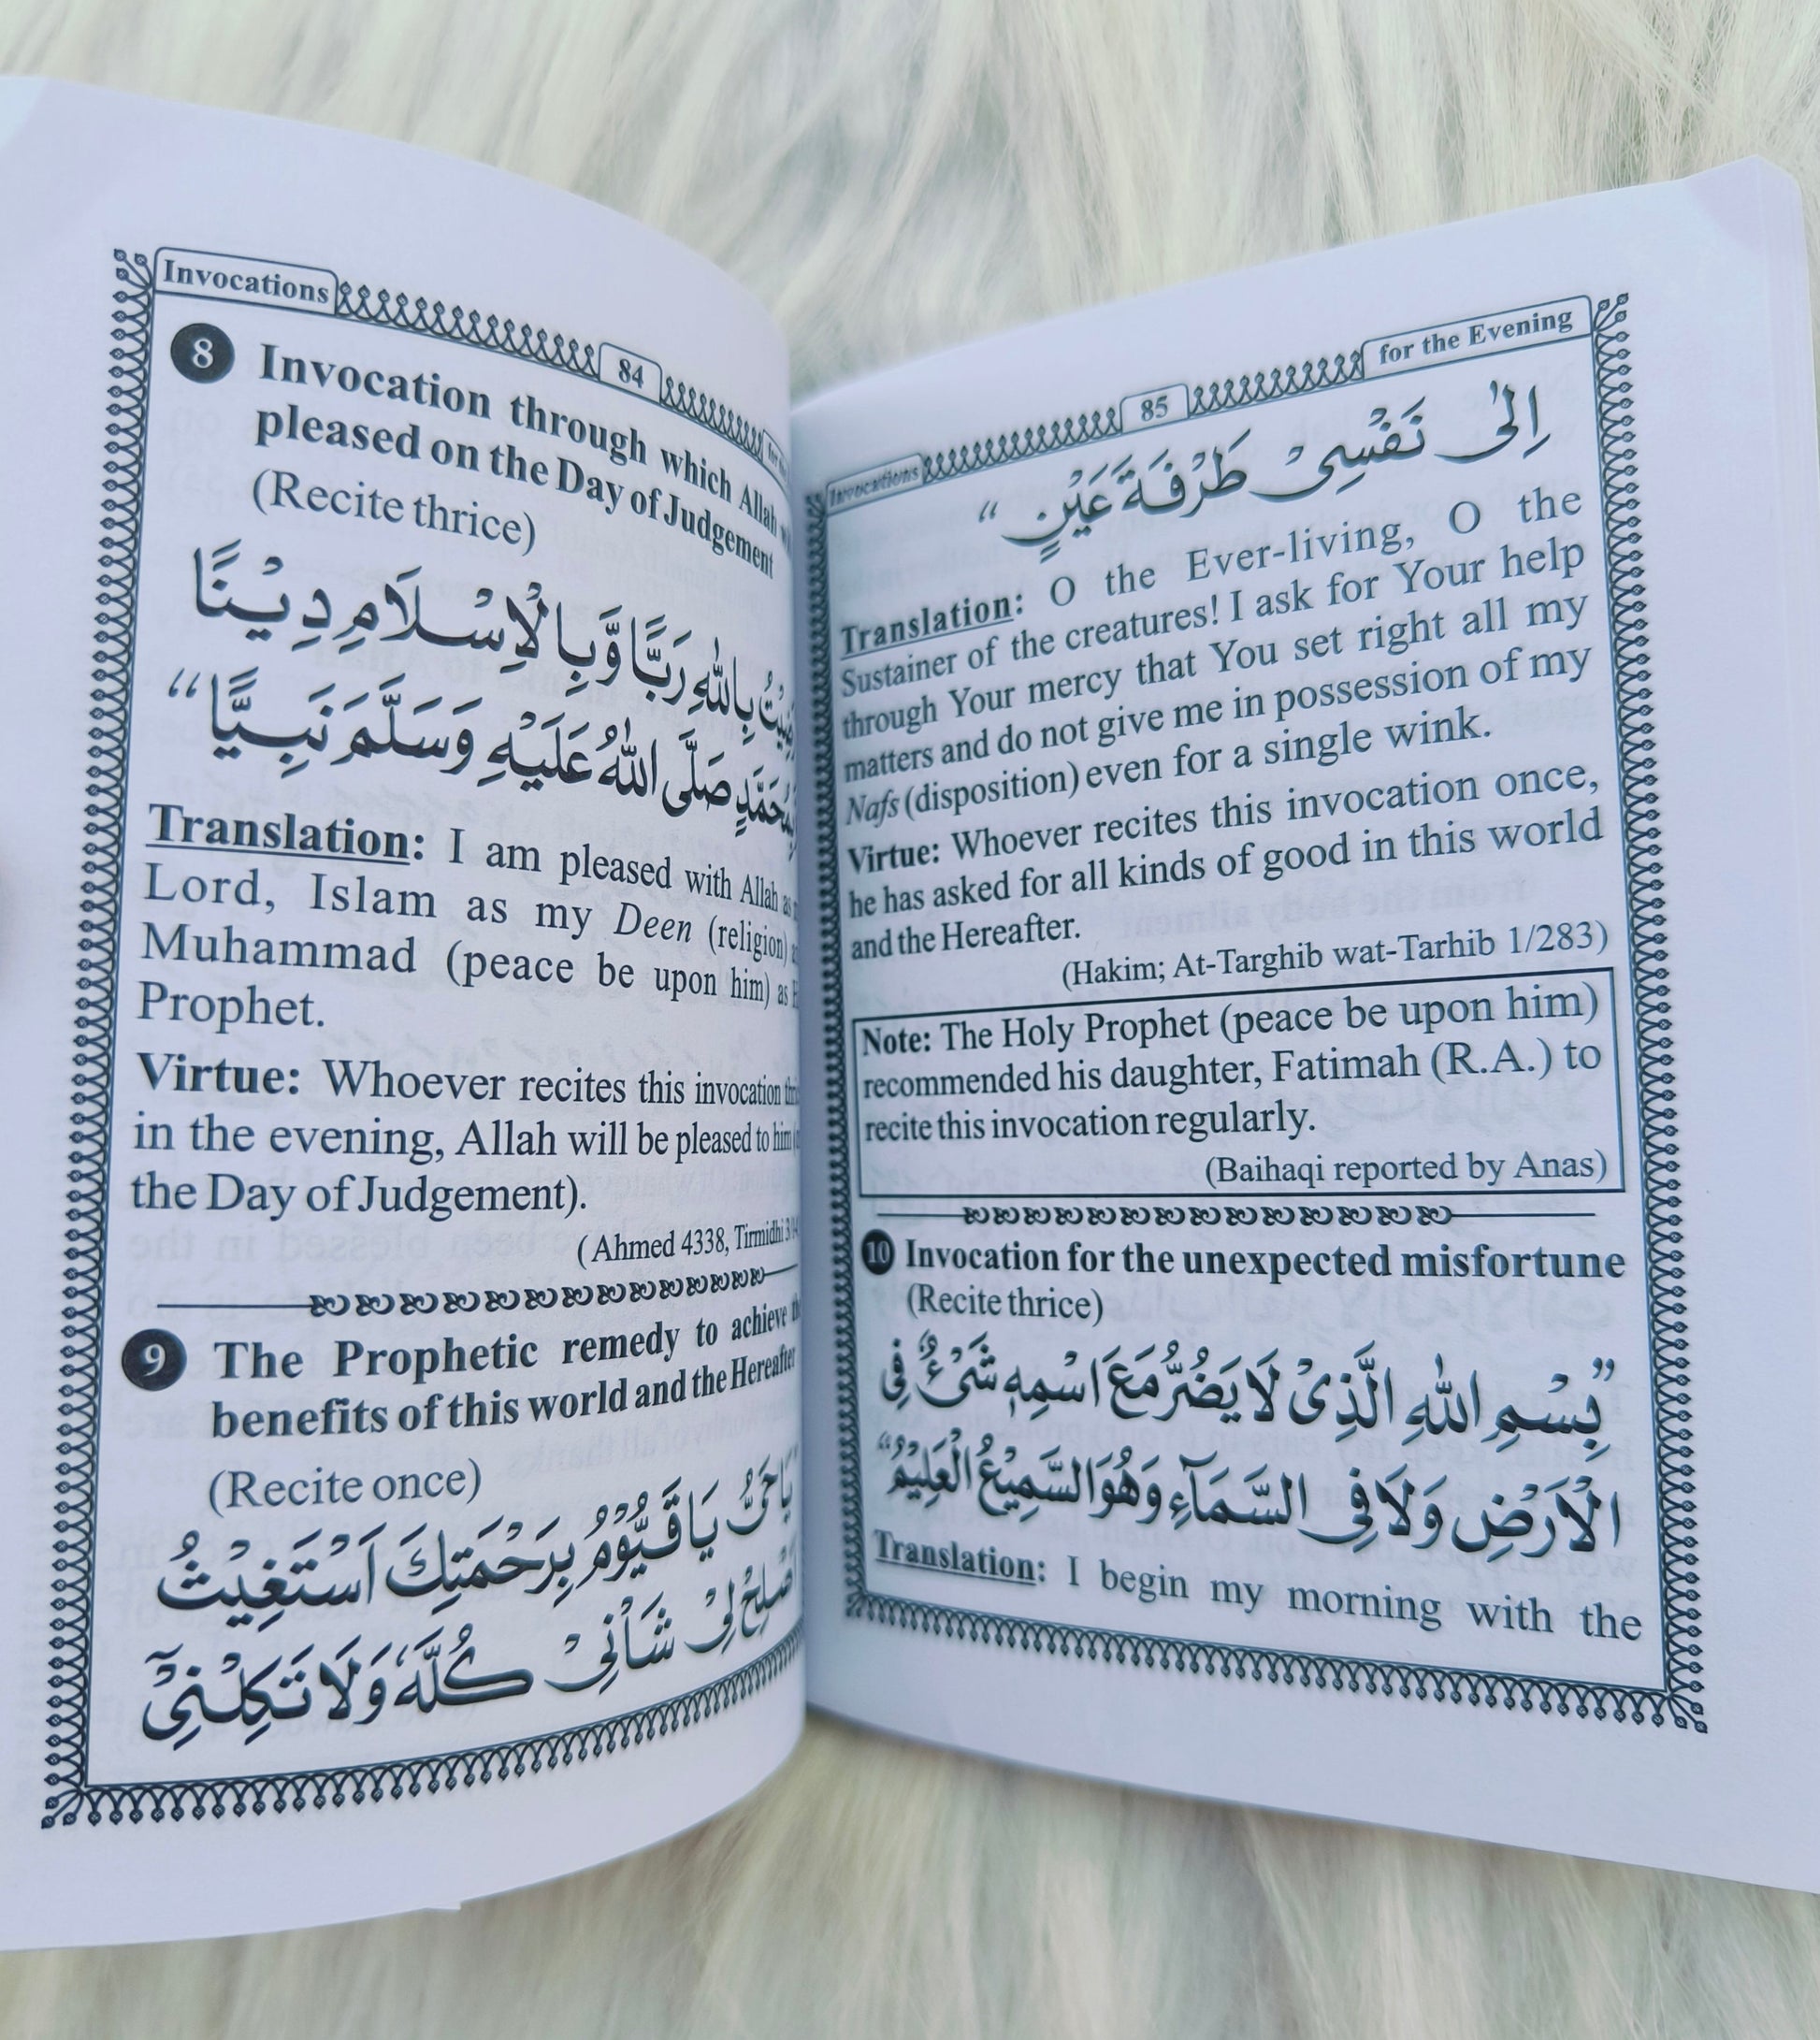 Invocations
84
8 Invocation through which Allah
pleased on the Day of Judgement
(Recite thrice)
بِاللّٰهِ رَبًّا وَّبِالْاِسْلَامِ دِيْنًا
صَلَّى اللّٰهُ عَلَيْهِ وَسَلَّمَ نَبِيًّا“
Translation: I am pleased with Allah as
Lord, Islam as my Deen (religion)
Muhammad (peace be upon him) as
Prophet.
Virtue: Whoever recites this invocation
in the evening, Allah will be pleased to him
the Day of Judgement).
(Ahmed 4338, Tirmidhi
9 The Prophetic remedy to achieve
benefits of this world and the Hereafter
(Recite once)
يَاحَىُّ يَاقَيُّوْمُ بِرَحْمَتِكَ اَسْتَغِيْثُ
لِىْ شَاْنِىْ كُلَّهٗ وَلَا تَكِلْنِىْٓ
Invocations
85
for the Evening
اِلٰى نَفْسِىْ طَرْفَةَ عَيْنٍ“
Translation: O the Ever-living, O the
Sustainer of the creatures! I ask for Your help
through Your mercy that You set right all my
matters and do not give me in possession of my
Nafs (disposition) even for a single wink.
Virtue: Whoever recites this invocation once,
he has asked for all kinds of good in this world
and the Hereafter.
(Hakim; At-Targhib wat-Tarhib 1/283)
Note: The Holy Prophet (peace be upon him)
recommended his daughter, Fatimah (R.A.) to
recite this invocation regularly.
(Baihaqi reported by Anas)
10 Invocation for the unexpected misfortune
(Recite thrice)
”بِسْمِ اللّٰهِ الَّذِىْ لَا يَضُرُّ مَعَ اسْمِهٖ شَىْءٌ فِى
الْاَرْضِ وَلَا فِى السَّمَآءِ وَهُوَ السَّمِيْعُ الْعَلِيْمُ“
Translation: I begin my morning with the